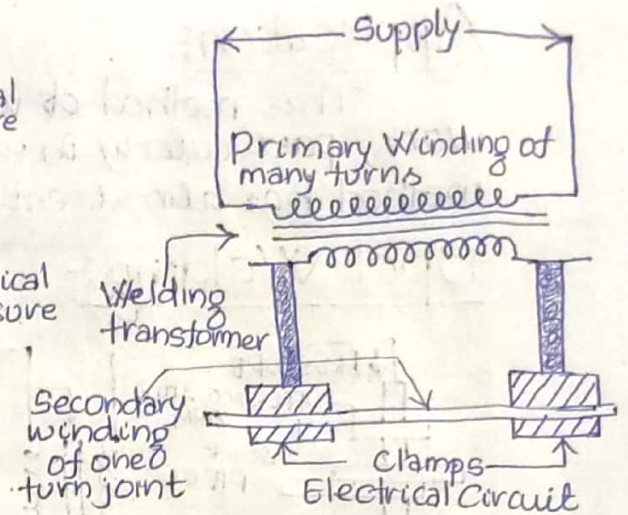 Supply
al
re
Primary Winding of
many turns
ical
sure
Welding
transformer
Secondary
winding
of one
turn joint
Clamps
Electrical Circuit